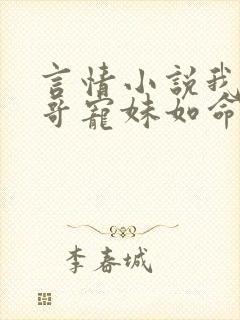 言情小说我
哥宠妹如命
李春城